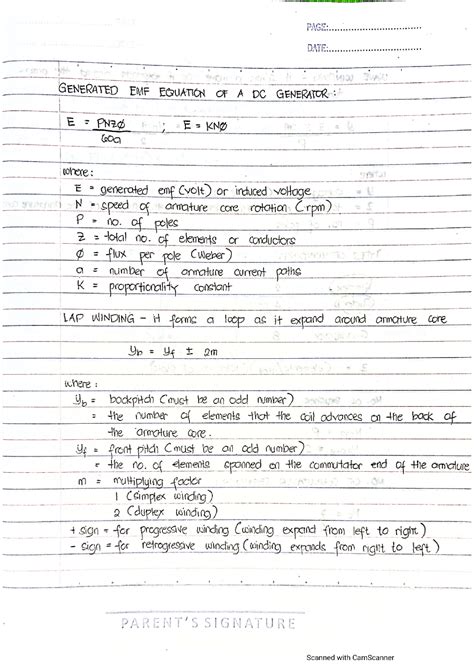 PAGE:
DATE:
GENERATED EMF EQUATION OF A DC GENERATOR:
E = PNZØ / 60a ; E = KNØ
where:
E = generated emf (volt) or induced voltage
N = speed of armature core rotation (rpm)
P = no. of poles
Z = total no. of elements or conductors
Ø = flux per pole (Weber)
a = number of armature current paths
K = proportionality constant
LAP WINDING - It forms a loop as it expand around armature core
Yb = Yf ± 2m
where:
Yb = backpitch (must be an odd number)
= the number of elements that the coil advances on the back of
the armature core.
Yf = front pitch (must be an odd number)
= the no. of elements spanned on the commutator end of the armature
m = multiplying factor
1 (simplex winding)
2 (duplex winding)
+ sign = for progressive winding (winding expand from left to right)
- sign = for retrogressive winding (winding expands from right to left)
PARENT'S SIGNATURE
Scanned with CamScanner